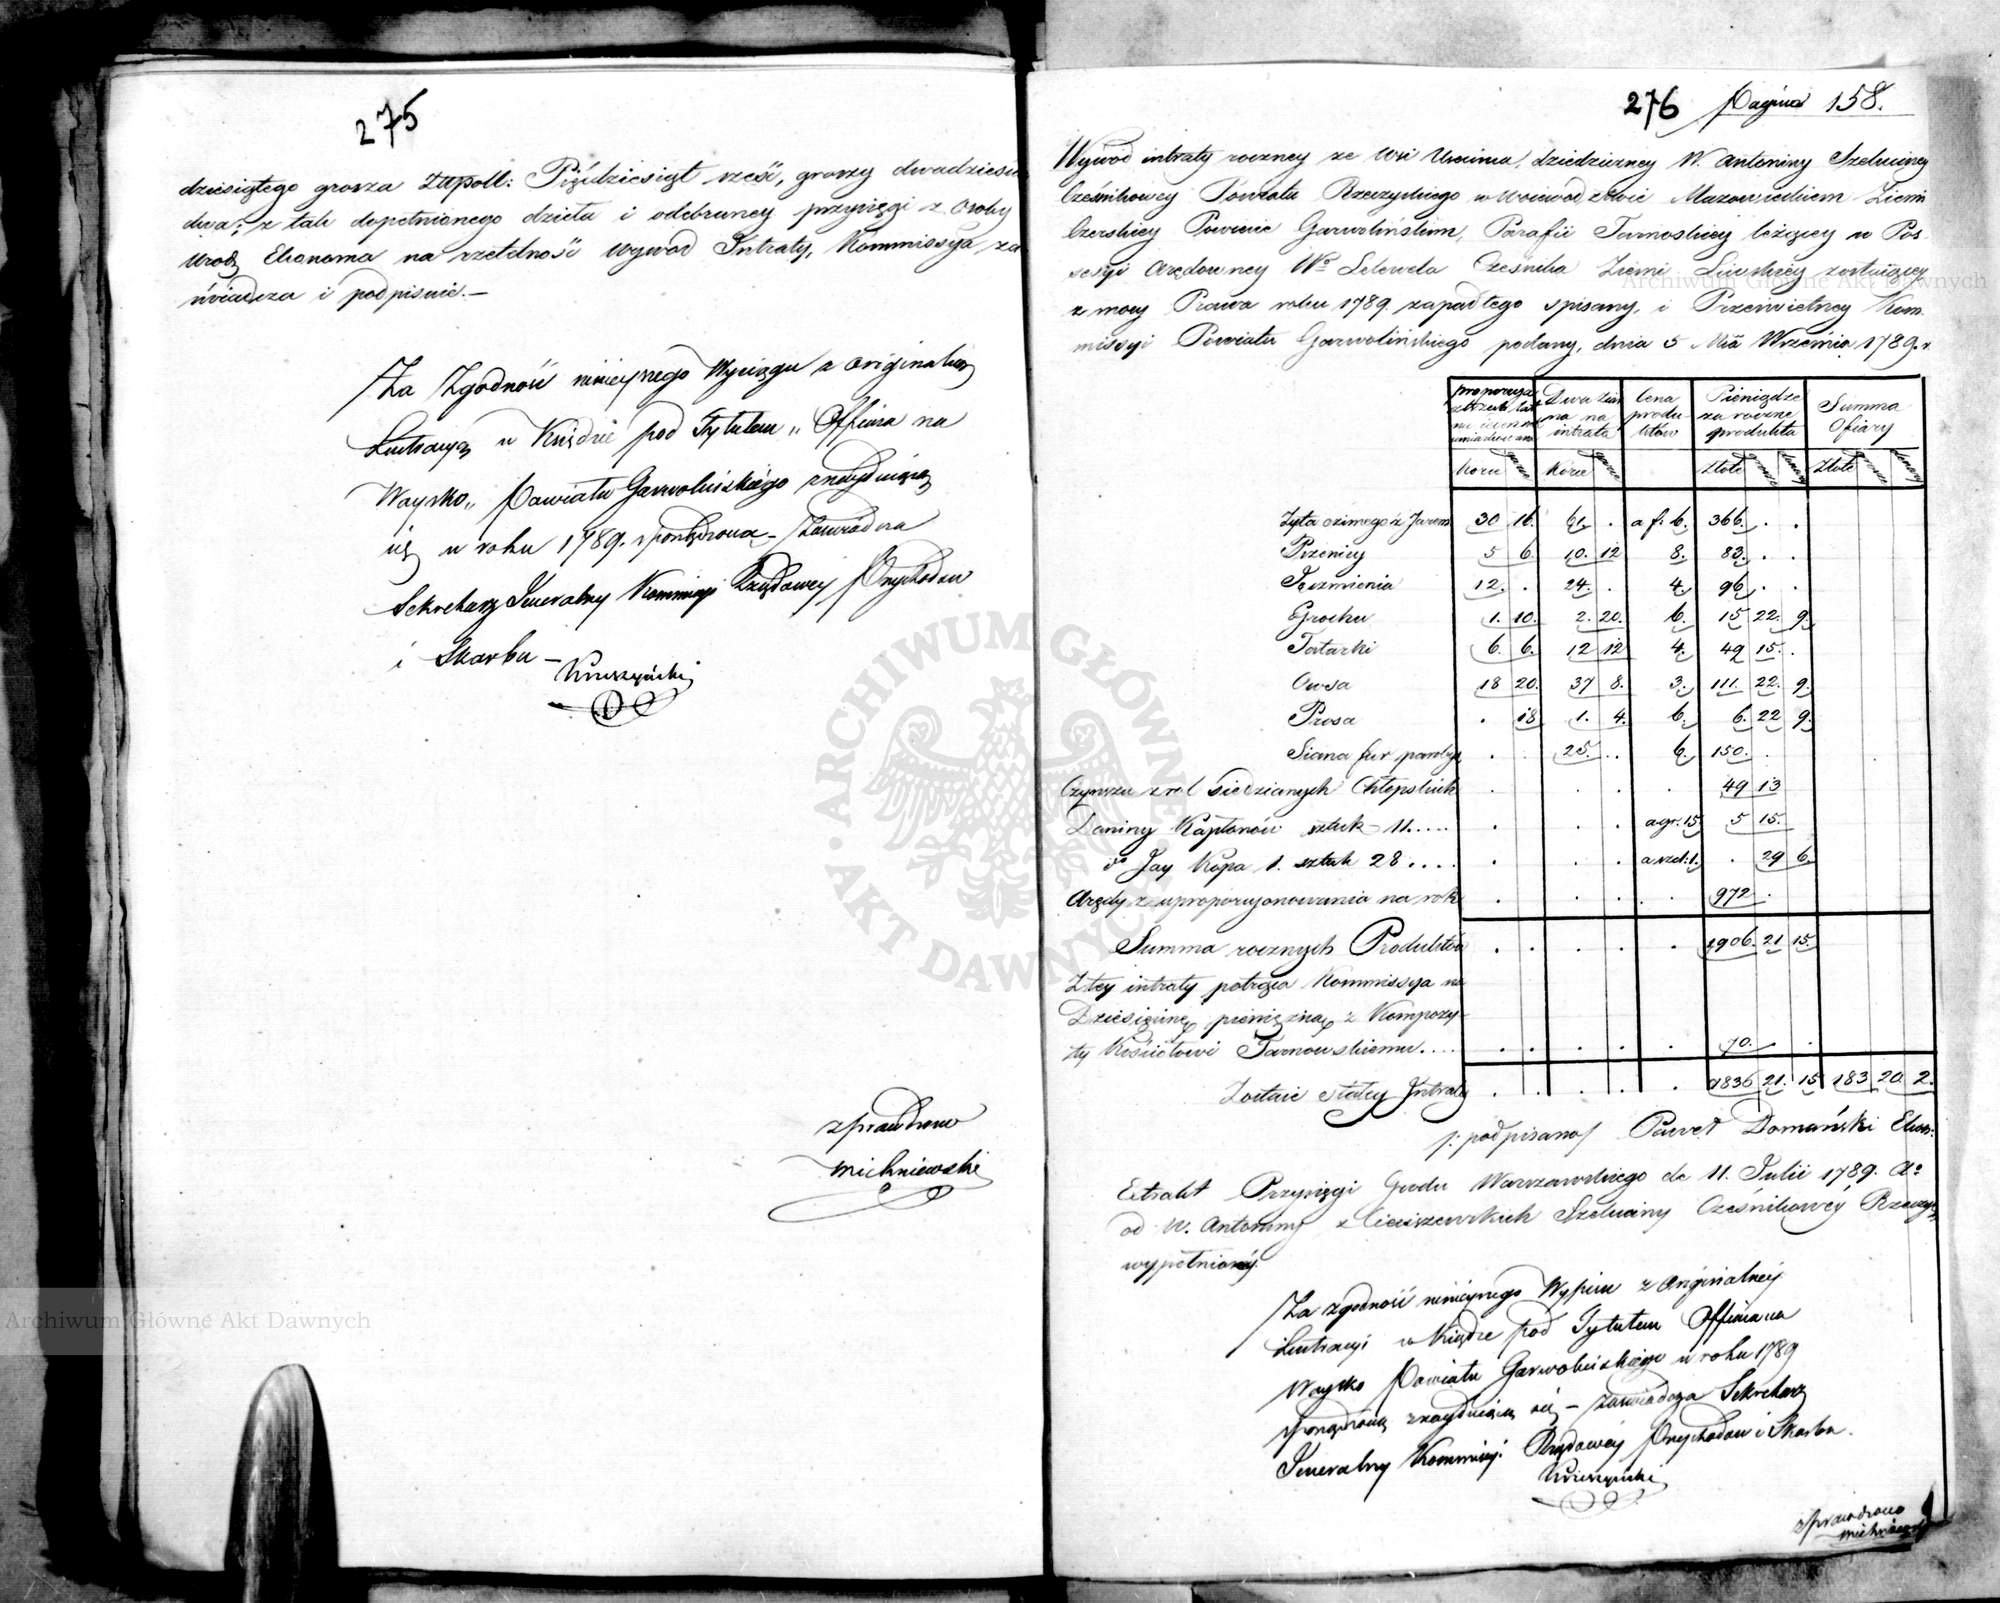 275
dziesiątego grosza Złłpoll: Pięćdziesiąt sześć, groszy dwadzieścia
dwa; z tak dopełnionego dzieła i odebraney przysięgi z Osoby
Urodz Ekonoma na rzetelność wywod Intraty, Kommissya za
świadcza i podpisuie.—
Za Zgodność ninieyszego Wyciągu z Originalną
Lustracyą w Księdze pod Tytułem „ Offiara na
Woysko „ Powiatu Garwolińskiego znayduiącą
się w roku 1789. sporządzona – Zaświadcza
Sekretarz Jeneralny Kommissyi Rządowey Przychodow
i Skarbu –
Kruszyński
sprawdzono
Michniewski
276 Pagina 158.
Wywod intraty roczney ze Wsi dziedziczney W. Antoniny
Cześnikowey Powiatu Rzeczyckiego w Woiewodztwie Mazowieckiem Ziemi
Czerskiey Powiecie Garwolińskim, Parafii Tarnoskiey leżącey w Pos-
sesyi Arędowney Wo Lelewela Cześnika Ziemi Liwskiey zostaiącey
z mocy Prawa roku 1789. zapadłego spisany, i Prześwietney Kom-
missyi Powiatu Garwolińskiego podany, dnia 5 Mca Września 1789. r
proporcya z trzech lat na ieden rok Dwa ziar na na intrata Cena produ- któw Pieniądze za roczne produkta Summa Ofiary
Korce garce Korce garce Złote grosze szelągi Złote grosze szelągi
Żyta ozimego z Jarem 30 16. 61. . a f: 6. 366. . .
Pszenicy 5 6. 10. 12 8. 83. . .
Jęczmienia 12. . 24. . 4. 96. . .
Grochu 1. 10. 2. 20. 6. 15 22. 9.
Tatarki 6. 6. 12 12 4. 49 15. .
Owsa 18 20. 37 8. 3. 111. 22. 9.
Prosa . 18 1. 4. 6. 6. 22 9.
Siana fur 25. . . 6. 150. .
Czynszu z rol siedzianych Chłopskich . . . . 49 13
Daniny Kapłonów sztuk – 11. . . . . . . . a gr: 15. 5 15.
do Jay Kopa 1. sztuk 28 . . . . . . . a szel: 1. . 29 6.
Arędy z uproporcyonowania na rok . . . . . 972 .
Summa rocznych Produktów . . . . . 1906. 21 15.
Z tey intraty potrąca Kommissya na
Dziesięcinę pieniężną z Kompozy-
ty Kościołowi Tarnowskiemu. . . . . . . . . 70. . .
Zostaie stałey Intraty . . . . . 1836 21. 15 183 20. 2.
/: podpisano / Paweł Domański Ekon:
Extrakt Przysięgi Grodu Warszawskiego de 11. Julii 1789. Ao
od W. Antoniny z Cieciszewskich Cześnikowey Rzeczyc
wypełnioney.
Za zgodność ninieyszego Wypisu z Originalney
Lustracyi w Księdze pod Tytułem Offiara na
Woysko Powiatu Garwolińskiego w roku 1789
sporządzoną znayduiącą się – Zaświadcza Sekretarz
Jeneralny Kommissyi Rządowey Przychodow i Skarbu.
Kruszyński
sprawdzono
Michniewski
Archiwum Główne Akt Dawnych
ARCHIWUM GŁÓWNE AKT DAWNYCH
Archiwum Główne Akt Dawnych